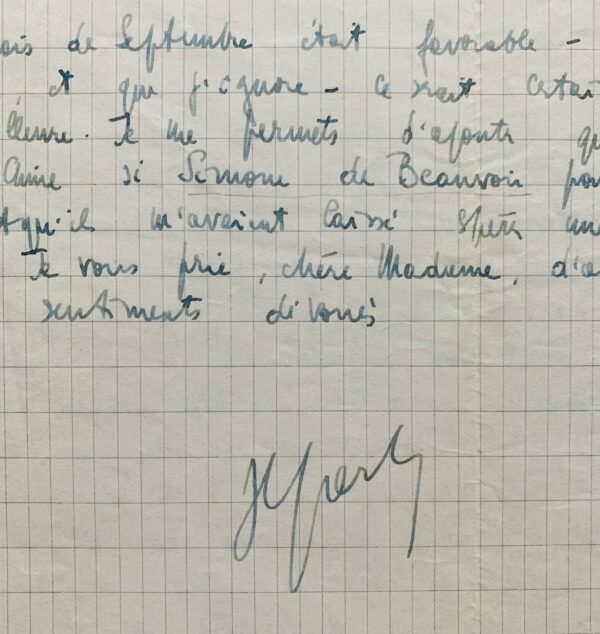 ois de Septembre était favorable -
et que j'ignore - ce serait certai
lleure. Je me permets d'ajouter qu
si Simone de Beauvoir pou
qu'ils m'avaient laissé espérer une
Je vous prie, chère Madame, d'a
sentiments dévoués
JPSartre